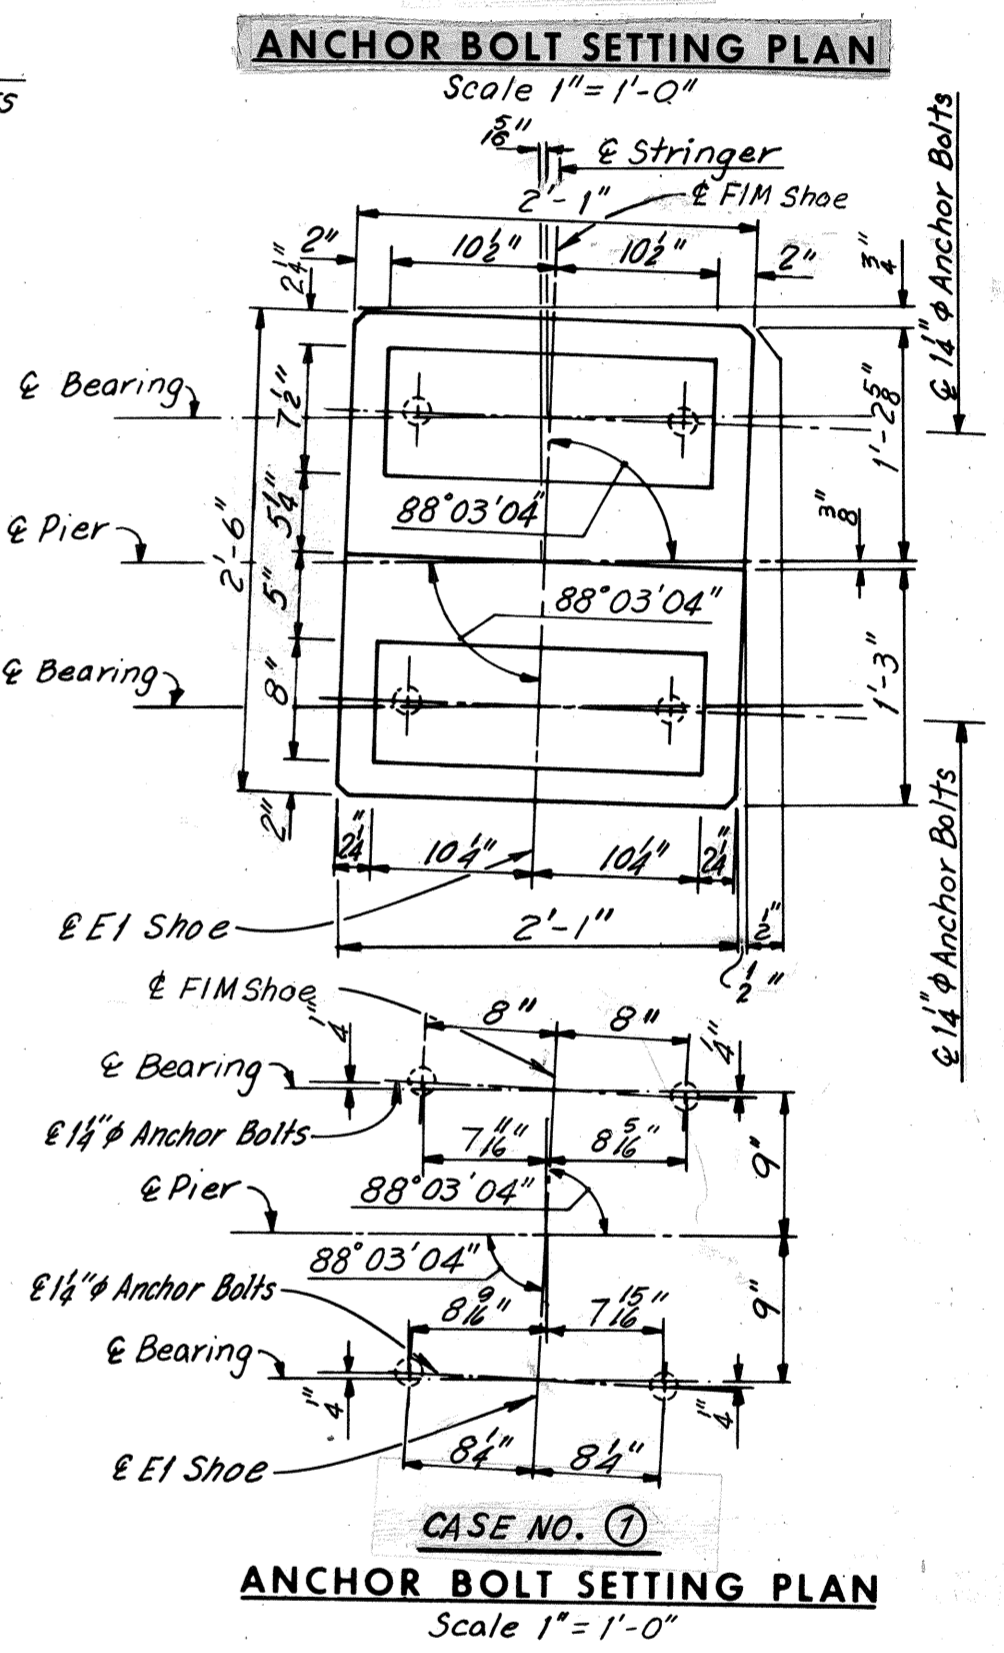 ANCHOR BOLT SETTING PLAN
Scale 1" = 1'-0"
5/16"
℄ Stringer
2'-1"
℄ F1M Shoe
2"
10½"
10½"
2"
¾"
2¼"
℄ 1¼" ϕ Anchor Bolts
℄ Bearing
7½"
1'-2⅝"
88°03'04"
5¼"
⅜"
℄ Pier
2'-6"
5"
88°03'04"
℄ Bearing
8"
1'-3"
2"
2¼"
10¼"
10¼"
2¼"
℄ 1¼" ϕ Anchor Bolts
℄ E1 Shoe
2'-1"
½"
½"
℄ F1M Shoe
8"
8"
¼"
¼"
℄ Bearing
℄ 1¼" ϕ Anchor Bolts
7 11/16"
8 5/16"
9"
℄ Pier
88°03'04"
88°03'04"
℄ 1¼" ϕ Anchor Bolts
8 9/16"
7 15/16"
9"
℄ Bearing
¼"
¼"
℄ E1 Shoe
8¼"
8¼"
CASE NO. ①
ANCHOR BOLT SETTING PLAN
Scale 1" = 1'-0"